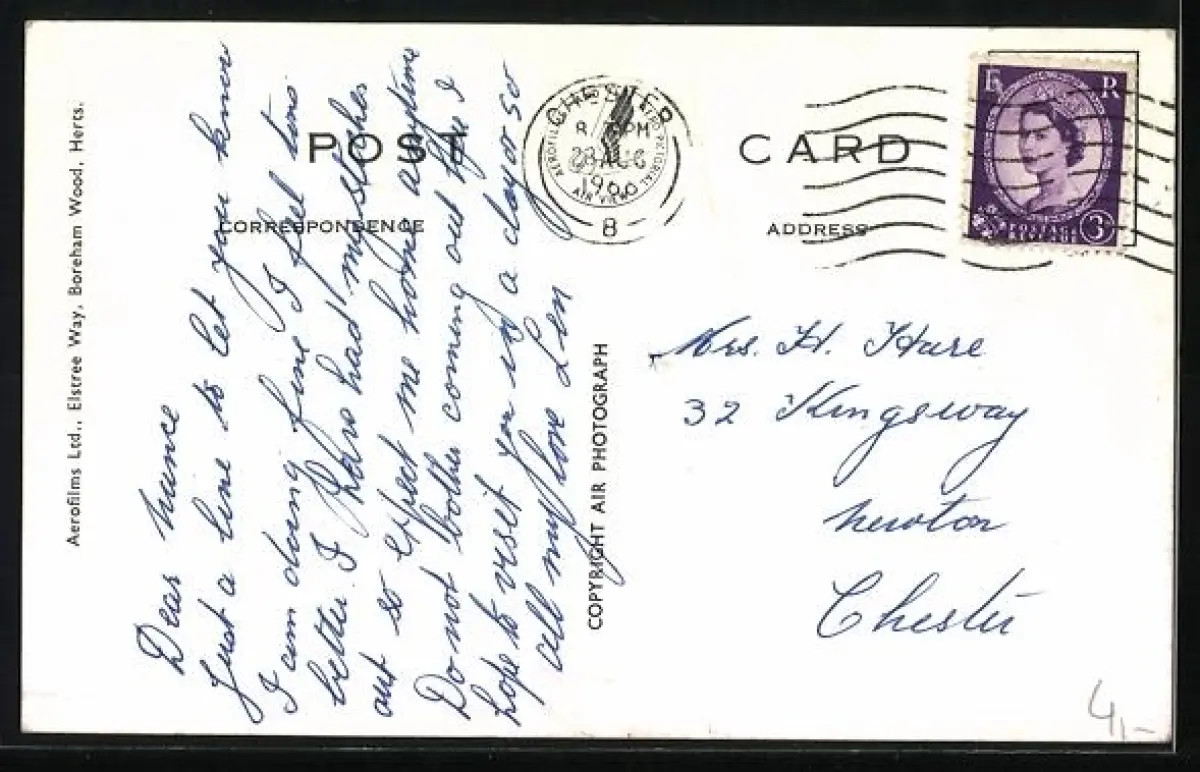 POST CARD
CORRESPONDENCE
ADDRESS
Dear nunce
Just a line to let you know
I am doing fine I feel tons
better. I have had my stiches
out so expect me home anytime
Do not bother coming out for I
hope to viset you in a day or so
all my love Len
CHESTER
PM
28 AUG
1960
8
AEROFILMS
AIR VIEW
E R
POSTAGE
REVENUE
3
Mrs. H. Hare
32 Kingsway
Newton
Chester
COPYRIGHT AIR PHOTOGRAPH
Aerofilms Ltd., Elstree Way, Boreham Wood, Herts.
4,-